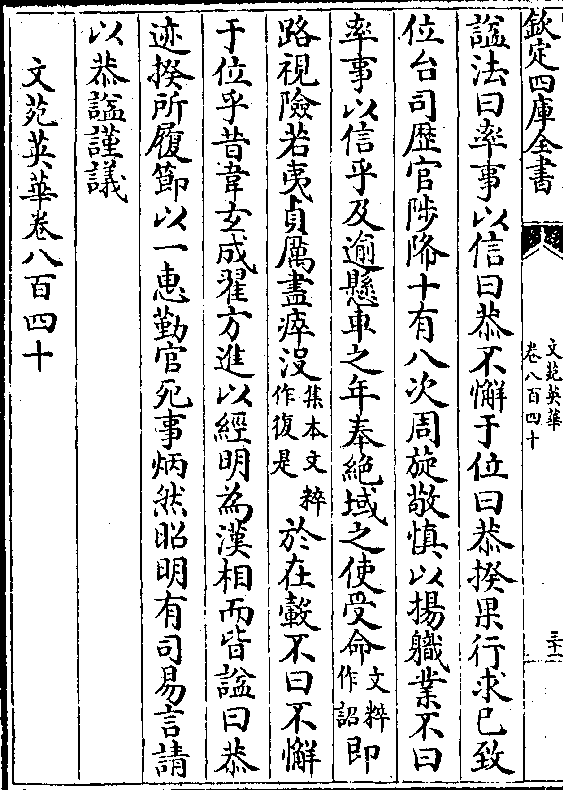 欽定四庫全書
文苑英華
卷八百四十
三十二
諡法曰率事以信曰恭不懈于位曰恭揆果行求已致
位台司歴官陟降十有八次周旋敬慎以揚職業不曰
率事以信乎及逾懸車之年奉絶域之使受命文粹作詔即
路視險若夷貞厲盡瘁沒集本文粹作復是於在轂不曰不懈
于位乎昔韋玄成翟方進以經明為漢相而皆諡曰恭
迹揆所履節以一惠勤官死事炳然昭明有司易言請
以恭諡謹議
文苑英華卷八百四十